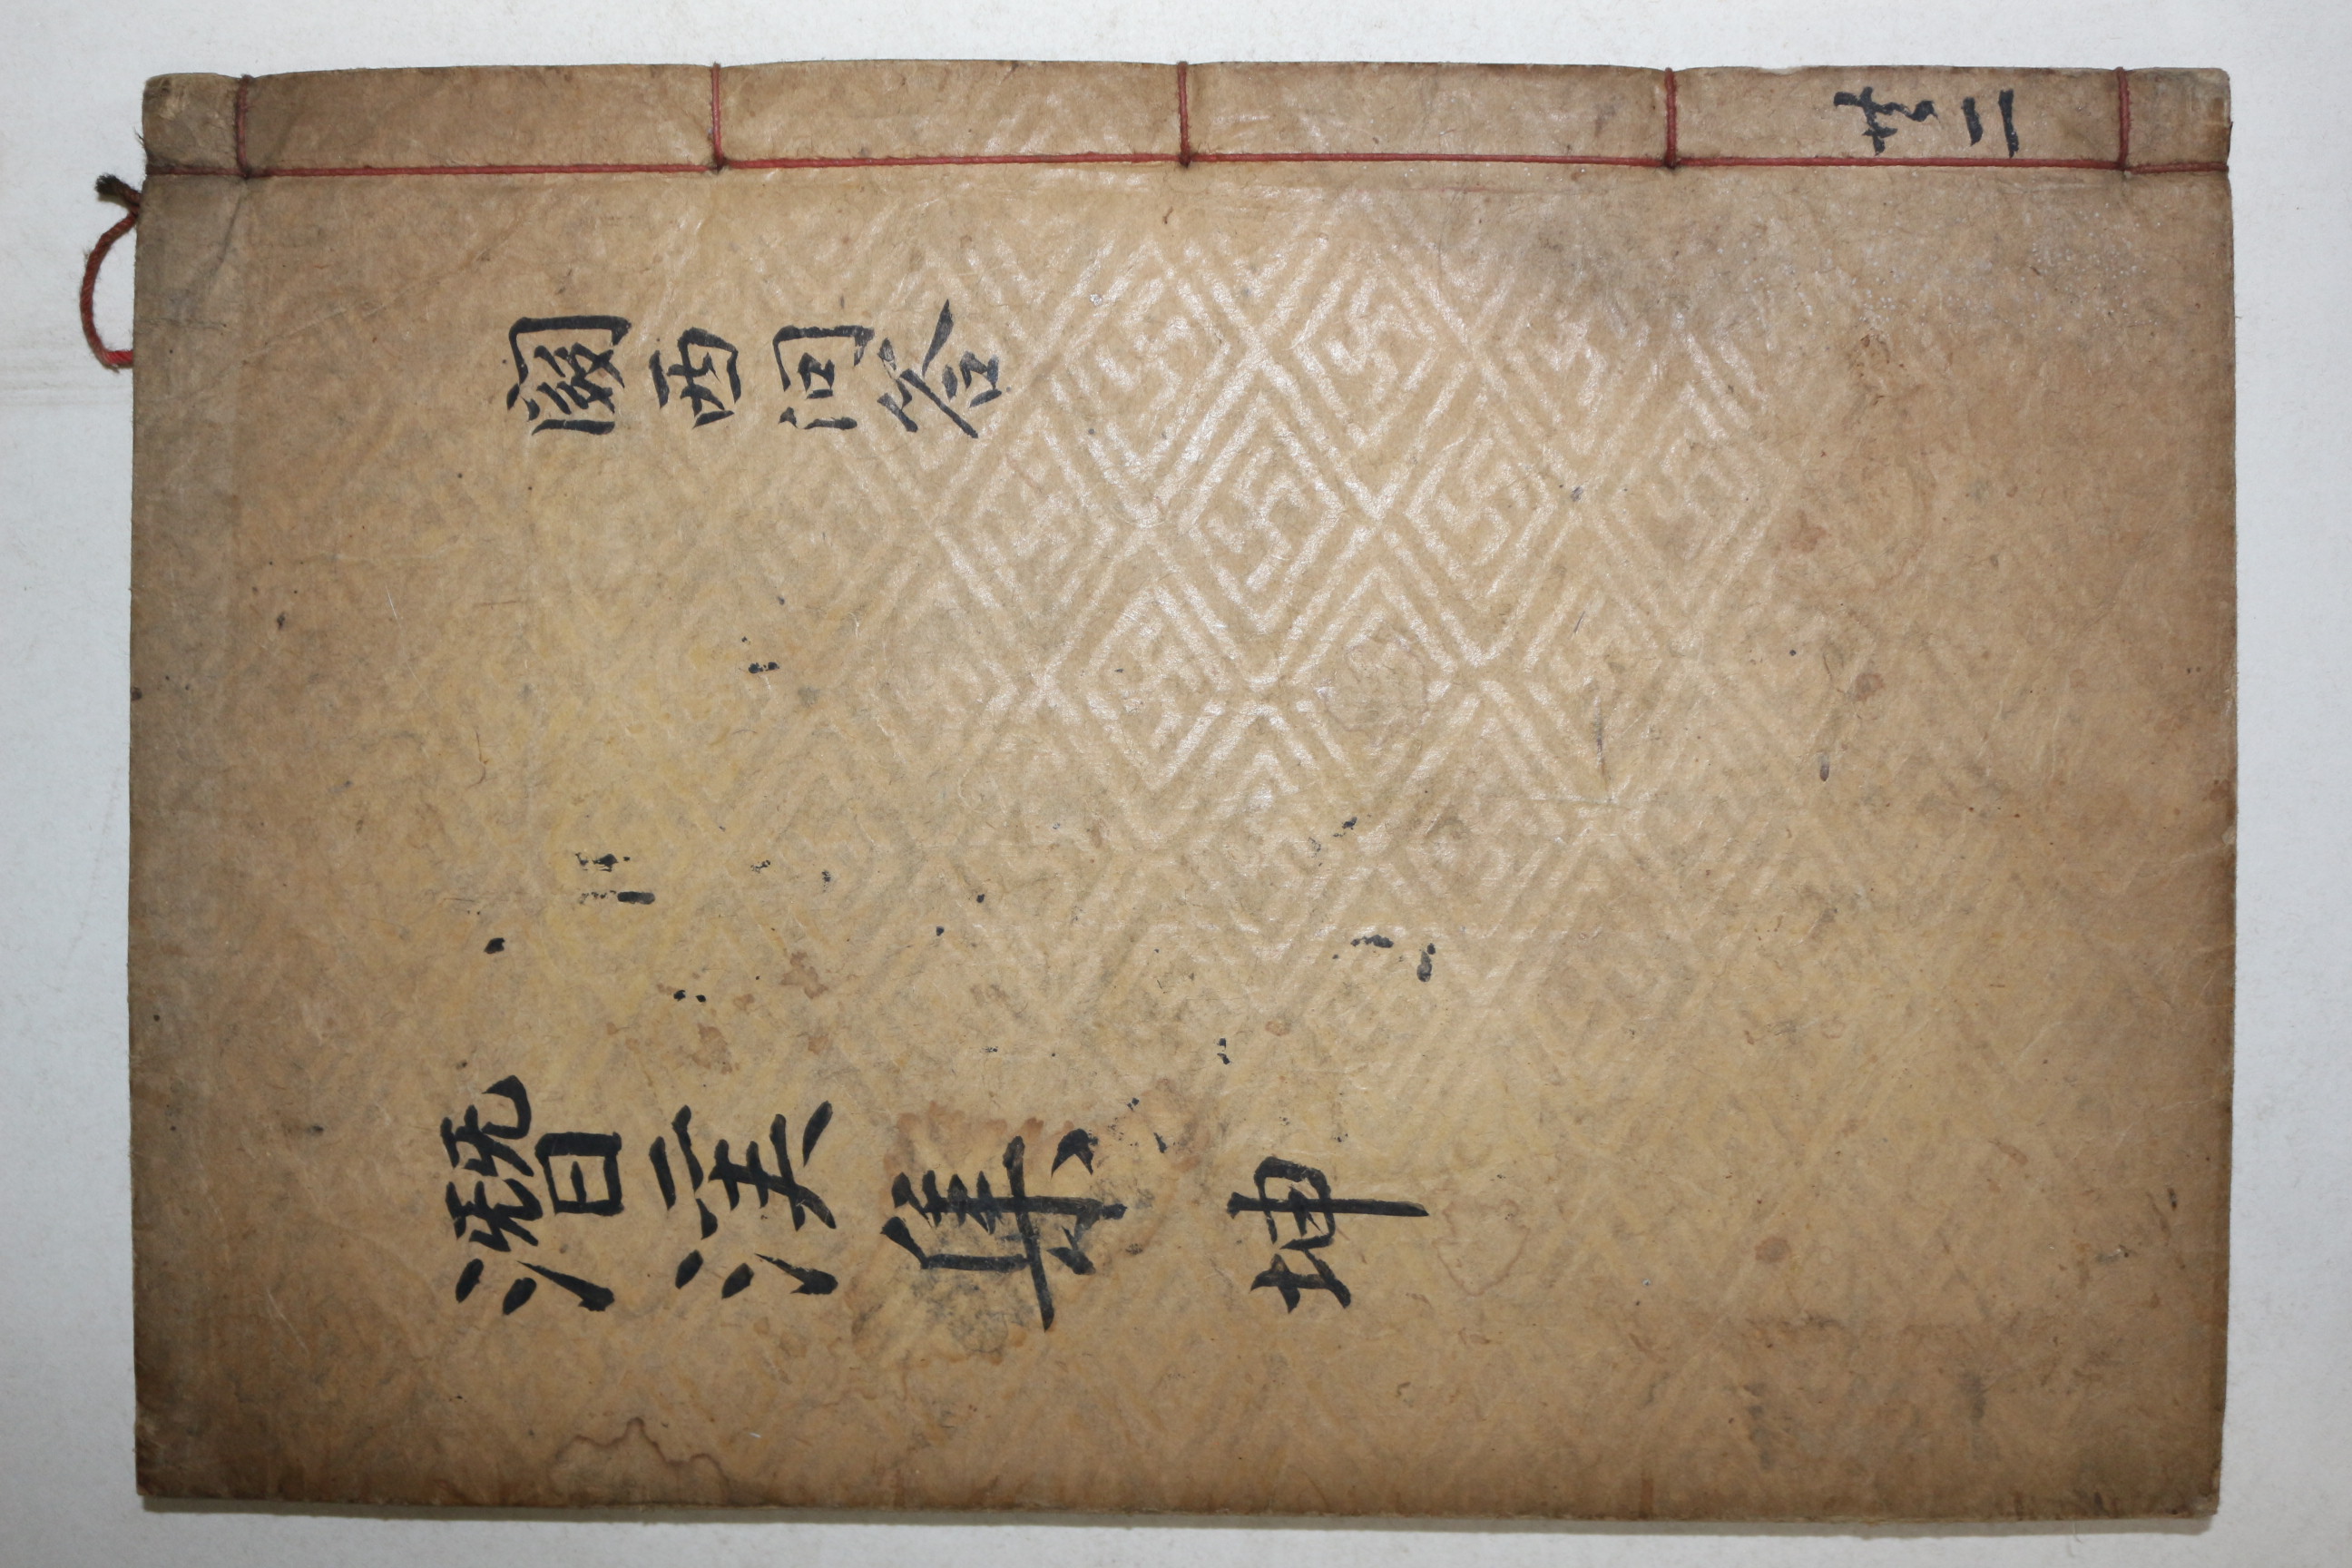 關西问答
潛溪集 坤
共二